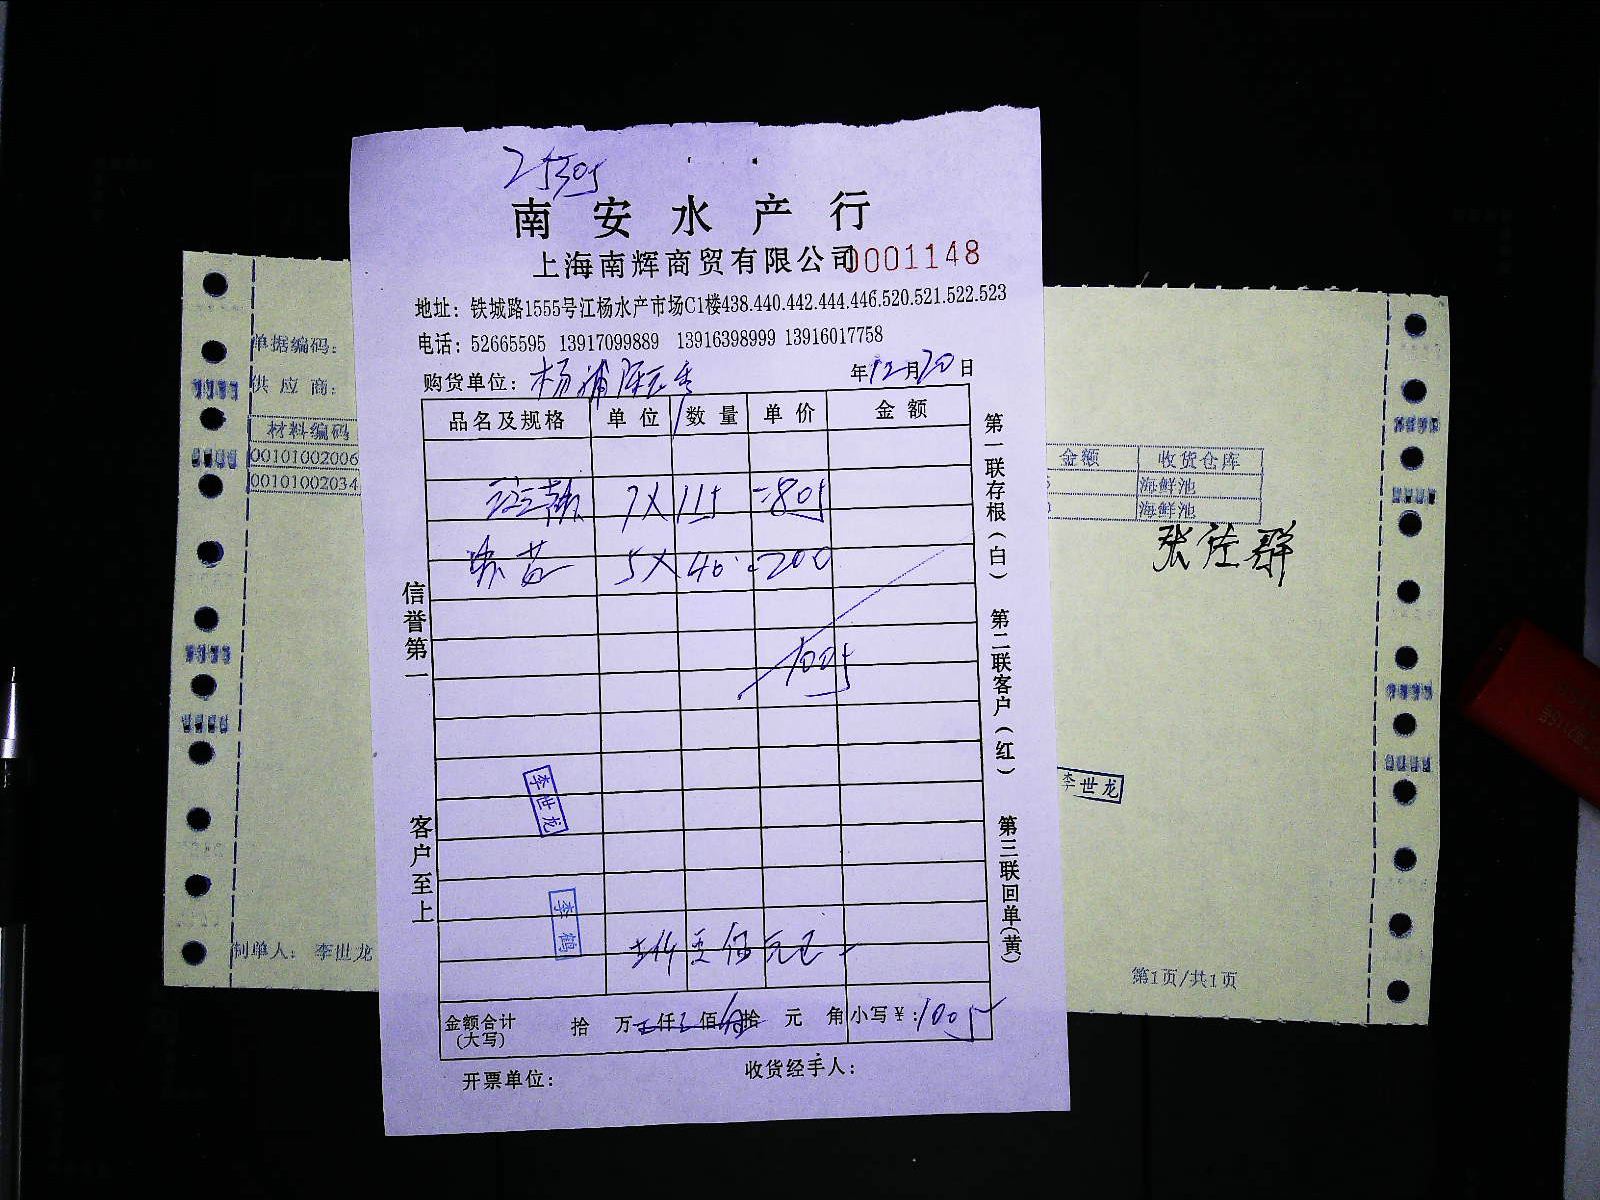 南安水产行
上海南辉商贸有限公司 0001148
地址：铁城路1555号江杨水产市场C1楼438.440.442.444.446.520.521.522.523
电话：52665595 13917099889 13916398999 13916017758
购货单位：杨浦
年12月20日
品名及规格 单位 数量 单价 金额
7X115=805
5X40=200
1005
李世龙
李鹤
元
金额合计(大写) 拾 万 仟 佰 拾 元 角 小写￥：1005
开票单位： 收货经手人：
信誉第一
客户至上
第一联存根(白) 第二联客户(红) 第三联回单(黄)
单据编码：
供应商：
材料编码
00101002006
00101002034
制单人：李世龙
金额 收货仓库
海鲜池
海鲜池
李世龙
第1页/共1页